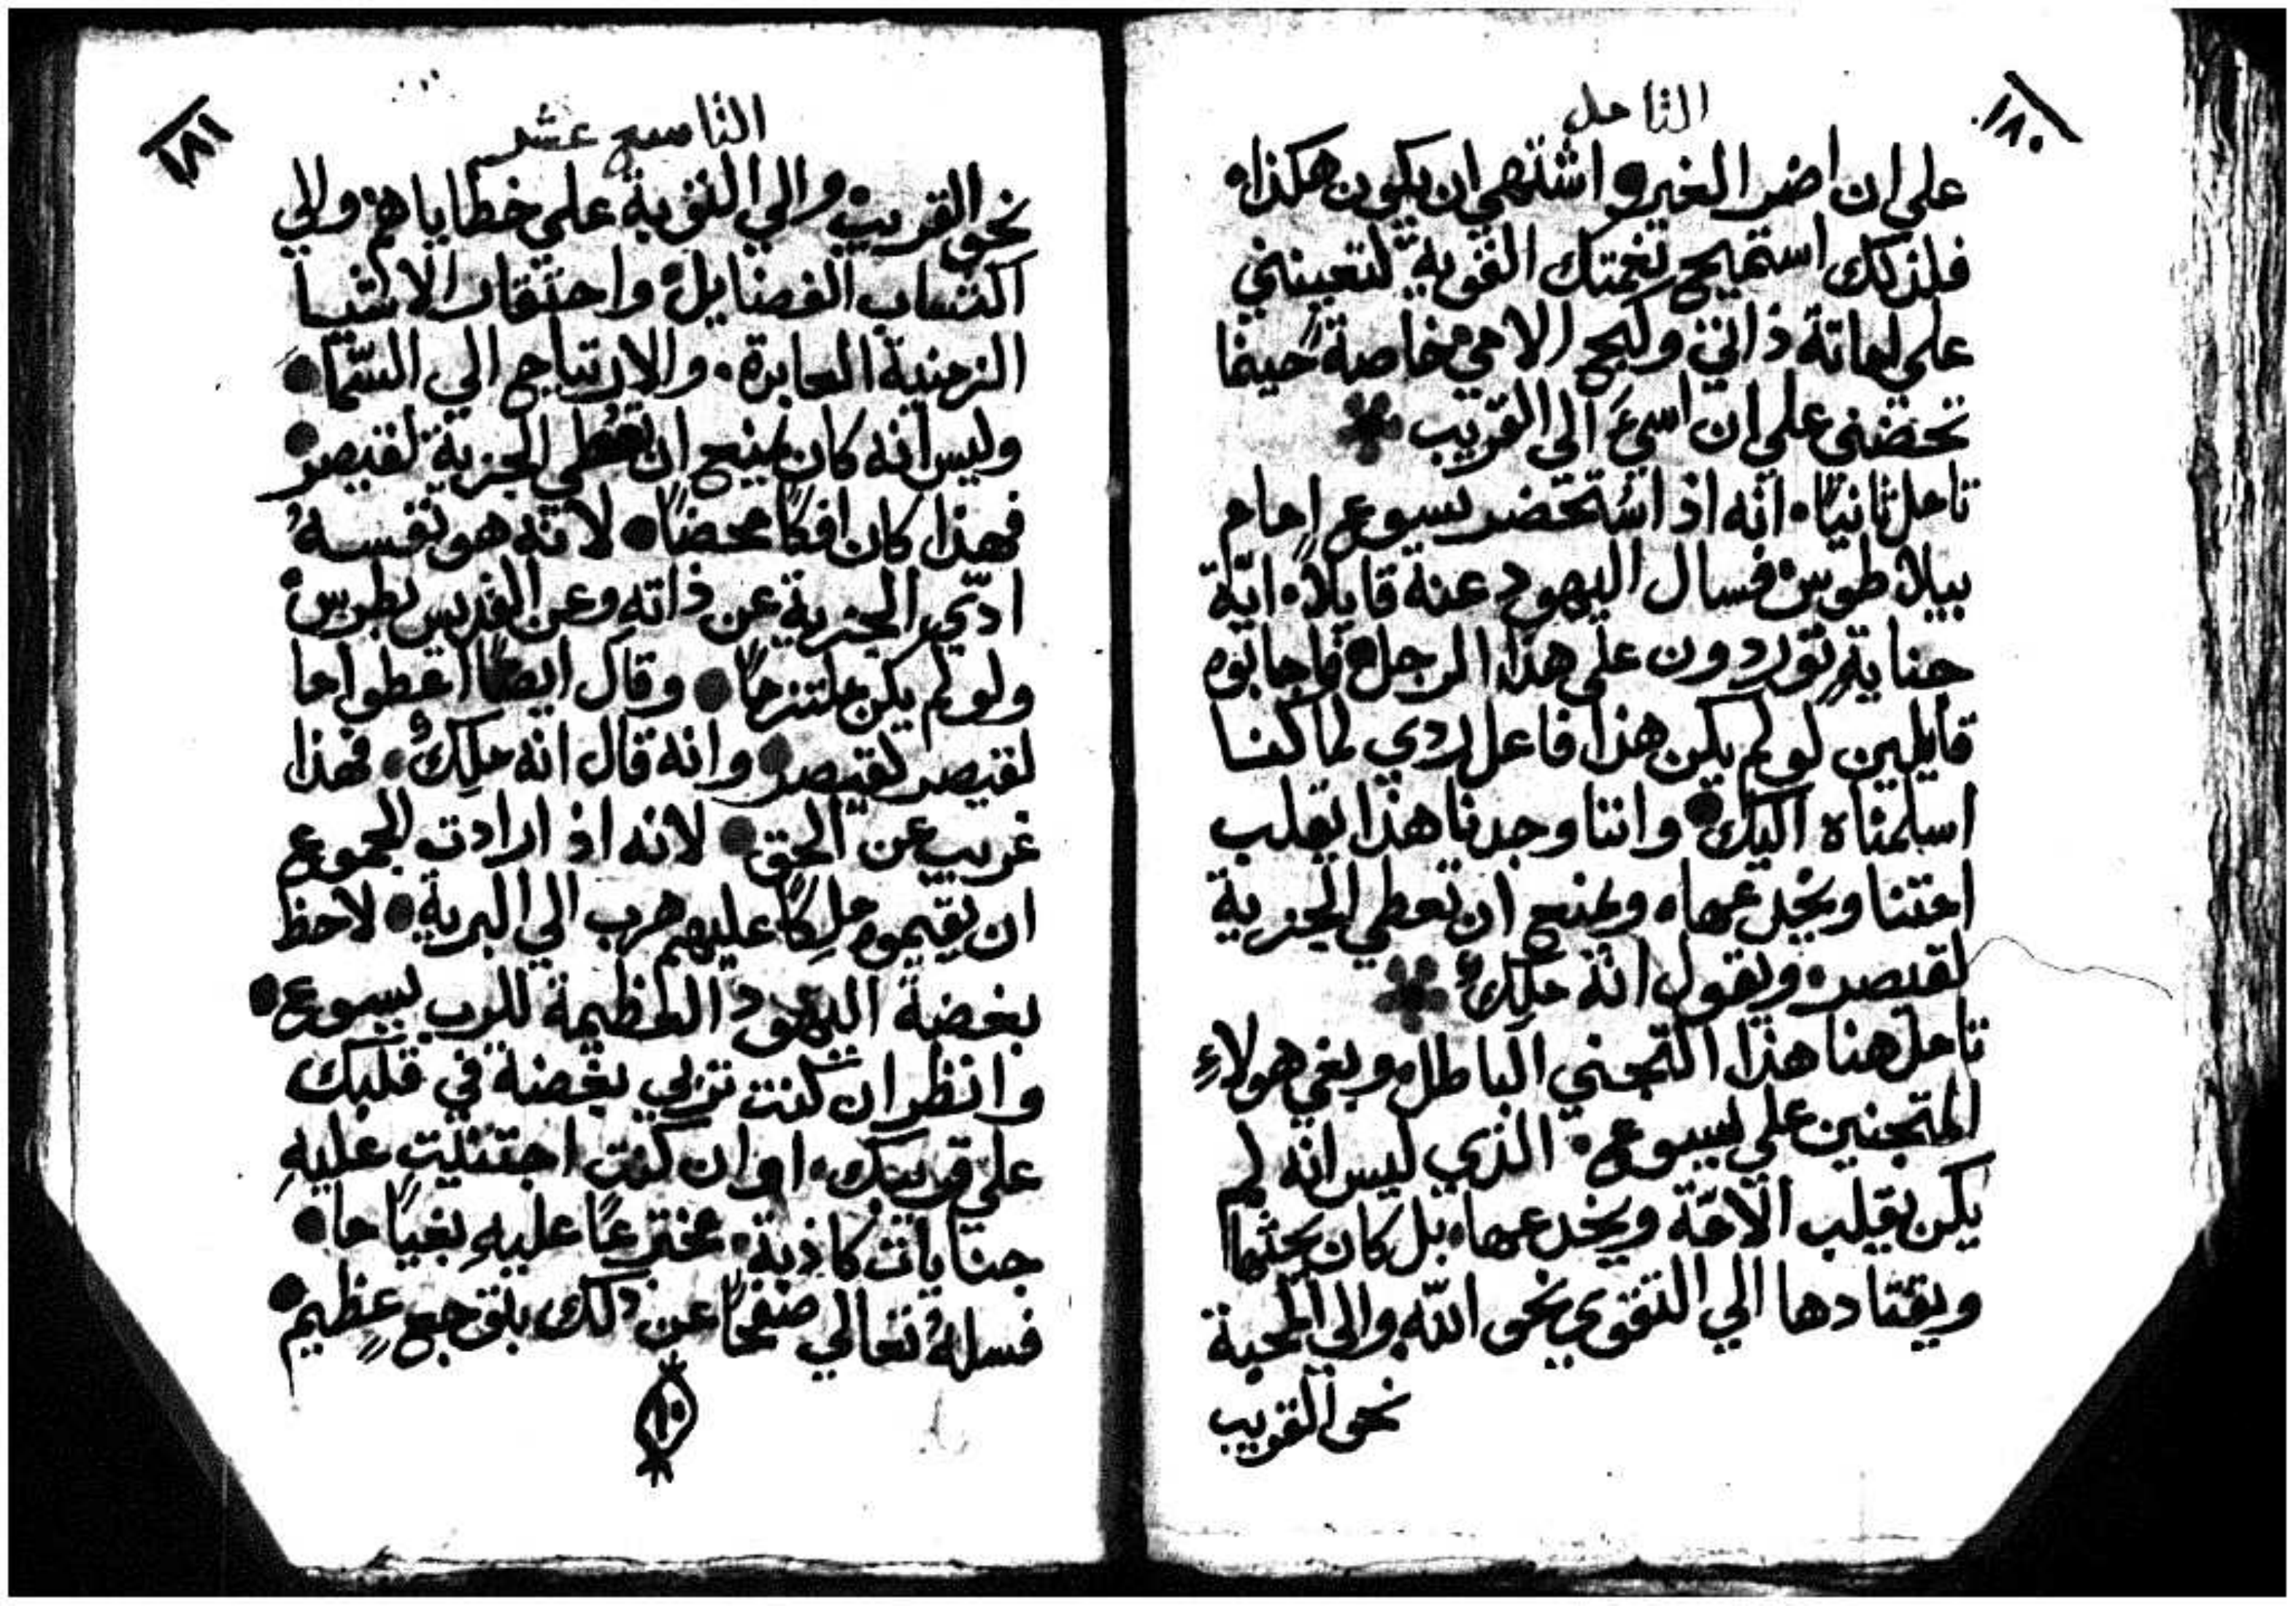 ١٨٠
التامل
علي ان اضر الغير واشتهي ان يكون هكذا.
فلذلك استميح نعمتك القوية لتعينني
علي اماتة ذاتي وكبح الامي خاصةً حينما
تحضني علي ان اسيَ الي القريب
تامل ثانيًا. انه اذ استحضر يسوع امام
بيلاطوس. فسال اليهود عنه قايلاً. ايّة
جناية توردون علي هذا الرجل. فاجابوه
قايلين لو لم يكن هذا فاعل ردي لما كنا
اسلمناه اليك. واننا وجدنا هذا يقلب
امتنا ويخدعها. ويمنع ان تعطي الجزية
لقيصر. ويقول انه ملكٌ
تامل هنا هذا التجني الباطل. وبغي هولاءِ
المتجنين علي يسوع. الذي ليس انه لم
يكن يقلب الامّة ويخدعها. بل كان يحثها
ويقتادها الي التقوي نحو الله. والي المحبة
نحو القريب
١٨١
التاسع عشر
نحو القريب. والي التوبة علي خطاياهم. والي
اكتساب الفضايل. واحتقار الاشيا
الزمنية العابرة. والارتياح الي السّما.
وليس انه كان يمنع ان تعطي الجزية لقيصر.
فهذا كان افكًا محضًا. لانه هو نفسهُ
ادّي الجزية عن ذاته وعن القديس بطرس.
ولو لم يكن ملتزمًا. وقال ايضًا اعطوا ما
لقيصر لقيصر. وانه قال انه ملكٌ. فهذا
غريب عن الحق. لانه اذ ارادت الجموع
ان يقيموه ملكًا عليهم هرب الي البرية. لاحظ
بغضة اليهود العظيمة للرب يسوع.
وانظر ان كنت تربي بغضة في قلبك
علي قريبك. او ان كنت اجتنيت عليهِ
جنايات كاذبة. مخترعًا عليهِ بغيًا ما.
فسلهُ تعالي صفحًا عن ذلك بتوجع عظيم.
١٠